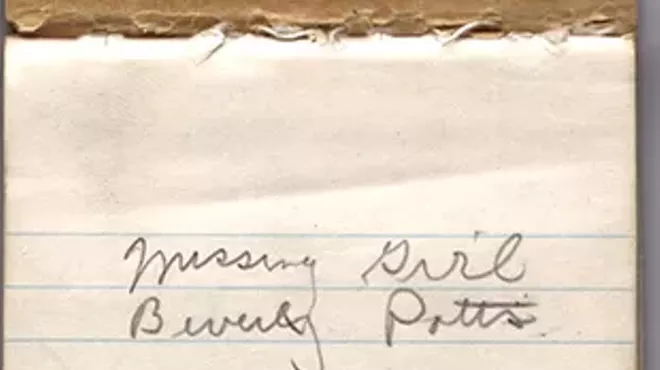 Missing Girl
Beverly Potts